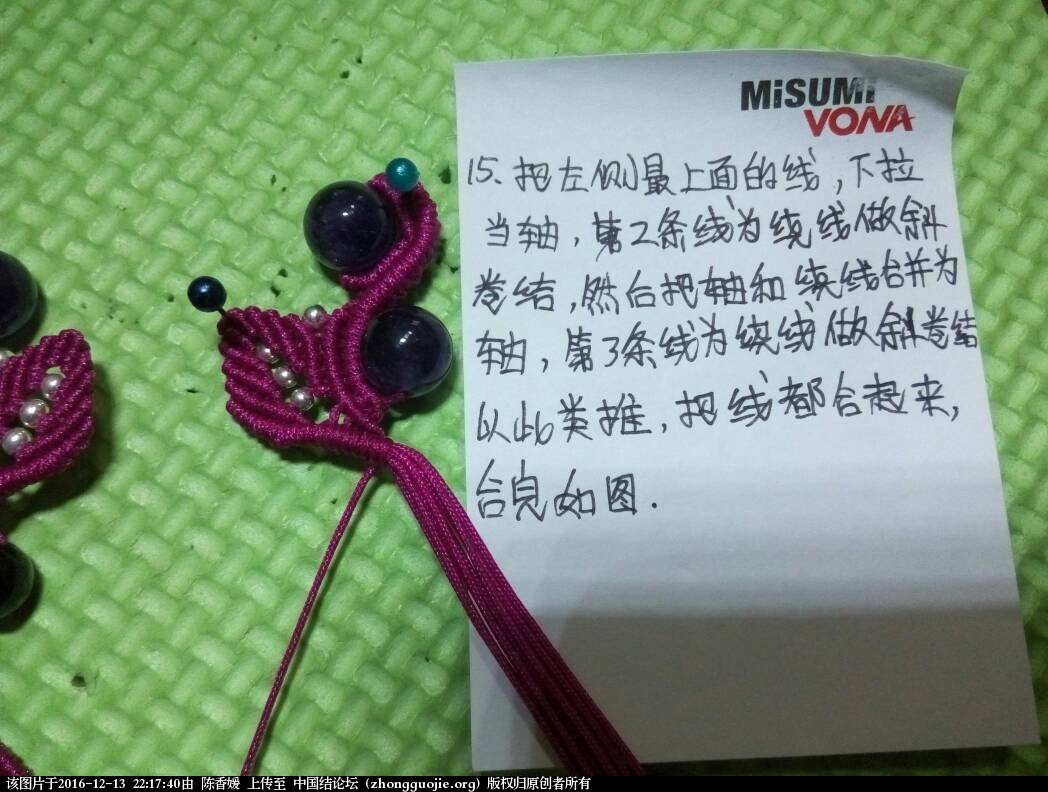 MiSUMi
VONA
15. 把左侧最上面的线，下拉
当轴，第2条线为绕线做斜
卷结，然后把轴和绕线合并为
轴，第3条线为绕线做斜卷结
以此类推，把线都合起来，
合完如图.
该图片于2016-12-13 22:17:40由 陈香媛 上传至 中国结论坛 (zhongguojie.org) 版权归原创者所有